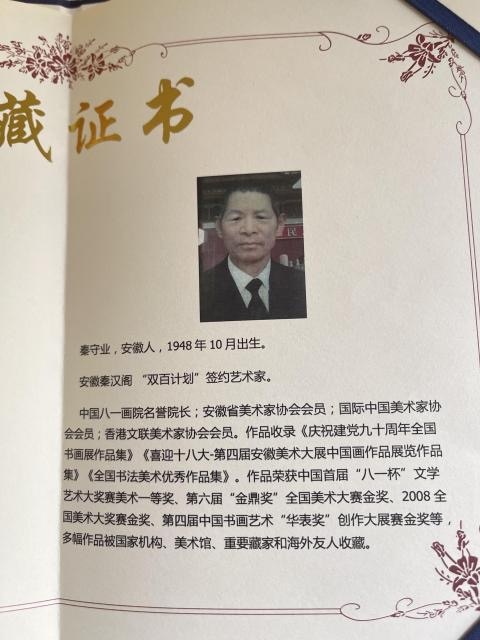 藏证书
秦守业，安徽人，1948年10月出生。
安徽秦汉阁 “双百计划”签约艺术家。
中国八一画院名誉院长；安徽省美术家协会会员；国际中国美术家协
会会员；香港文联美术家协会会员。作品收录《庆祝建党九十周年全国
书画展作品集》《喜迎十八大-第四届安徽美术大展中国画作品展览作品
集》《全国书法美术优秀作品集》。作品荣获中国首届“八一杯”文学
艺术大奖赛美术一等奖、第六届“金鼎奖”全国美术大赛金奖、2008全
国美术大奖赛金奖、第四届中国书画艺术“华表奖”创作大展赛金奖等，
多幅作品被国家机构、美术馆、重要藏家和海外友人收藏。